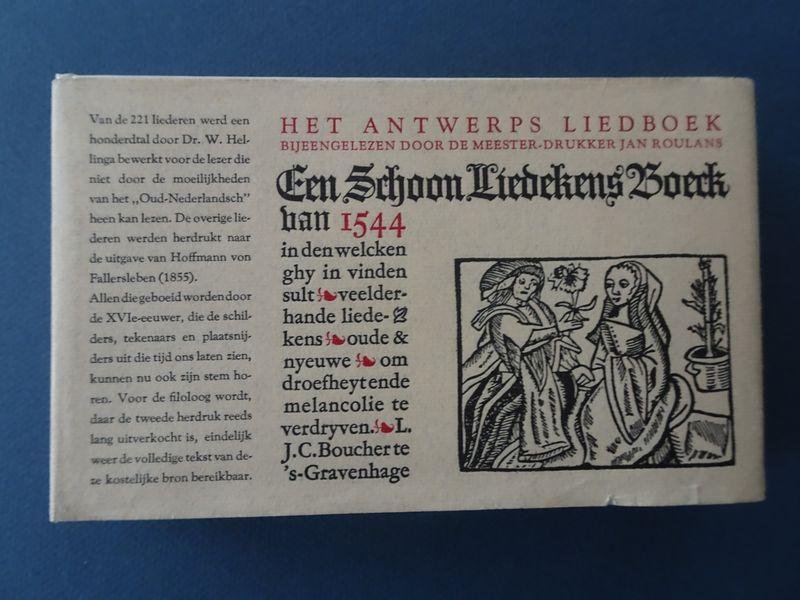 Van de 221 liederen werd een
honderdtal door Dr. W. Hel-
linga bewerkt voor de lezer die
niet door de moeilijkheden
van het „Oud-Nederlandsch”
heen kan lezen. De overige lie-
deren werden herdrukt naar
de uitgave van Hoffmann von
Fallersleben (1855).
Allen die geboeid worden door
de XVIe-eeuwer, die de schil-
ders, tekenaars en plaatsnij-
ders uit die tijd ons laten zien,
kunnen nu ook zijn stem ho-
ren. Voor de filoloog wordt,
daar de tweede herdruk reeds
lang uitverkocht is, eindelijk
weer de volledige tekst van de-
ze kostelijke bron bereikbaar.
HET ANTWERPS LIEDBOEK
BIJEENGELEZEN DOOR DE MEESTER-DRUKKER JAN ROULANS
Een Schoon Liedekens Boeck
van 1544
in den welcken
ghy in vinden
sult veelder-
hande liede-
kens oude &
nyeuwe om
droefheyt ende
melancolie te
verdryven. L.
J.C. Boucher te
's-Gravenhage